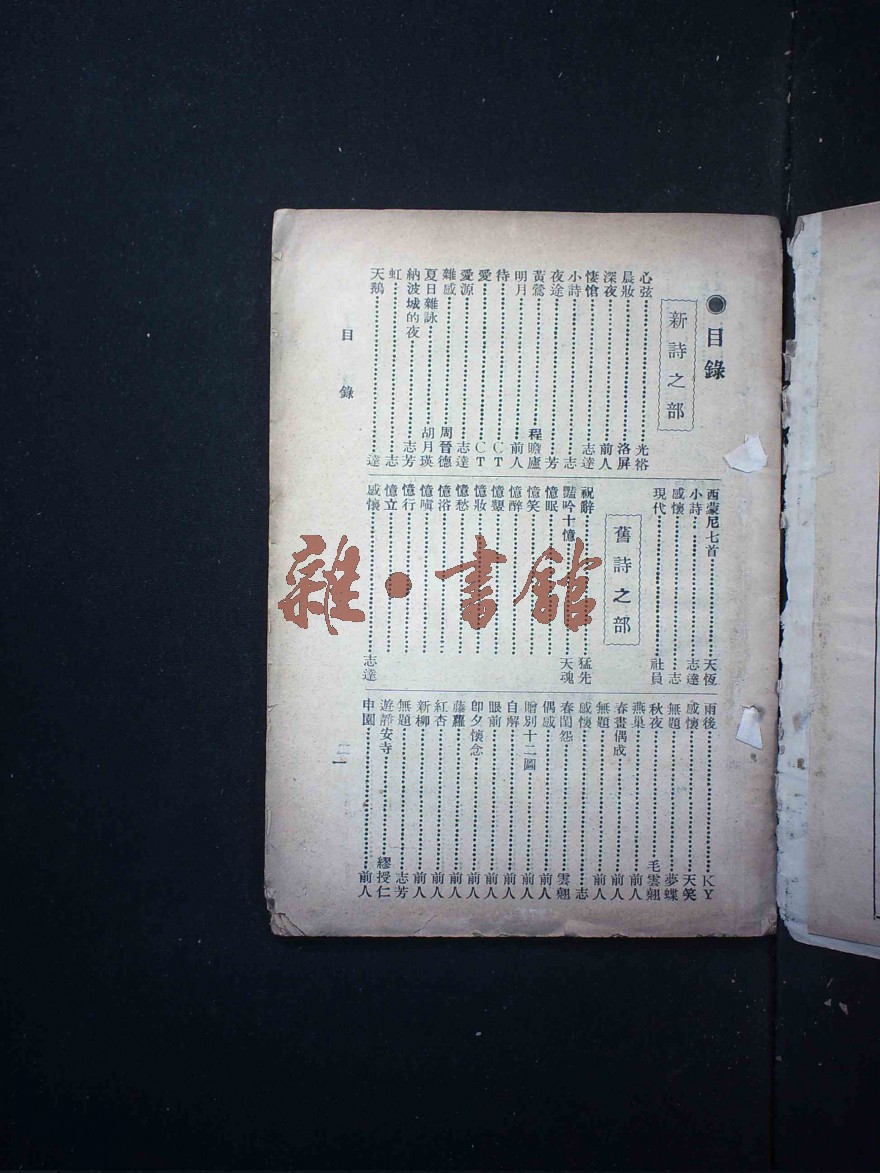 ●目錄
新詩之部
心弦……光裕
晨妝……洛屏
深夜……前人
悽愴……志達
小詩……志
夜途……芳
黃鶯……程瞻廬
明月……前人
待……CT
愛……CT
愛源……志達
雜感……周晉德
夏日雜詠……胡月瑛
納波城的夜……志芳
虹……志
天鵝……達
西蒙尼七首……天恆
小詩……志達
感懷……志
現代……社員
舊詩之部
祝辭……猛先
豔吟十憶……天魂
憶眠……
憶笑……
憶醉……
憶顰……
憶妝……
憶愁……
憶浴……
憶嗔……
憶行……
憶立……
感懷……志達
雨後……KY
感懷……天笑
無題……夢蝶
秋夜……毛雲翹
燕巢……前人
春晝偶成……前人
無題……前人
感懷……志
春閨怨……雲翹
偶感……前人
贈別十二圖……前人
自解……前人
眼前……前人
即夕懷念……前人
藤蘿……前人
紅杏……前人
新柳……前人
無題……志芳
遊靜安寺……繆授仁
申園……前人
目錄
雜·書館